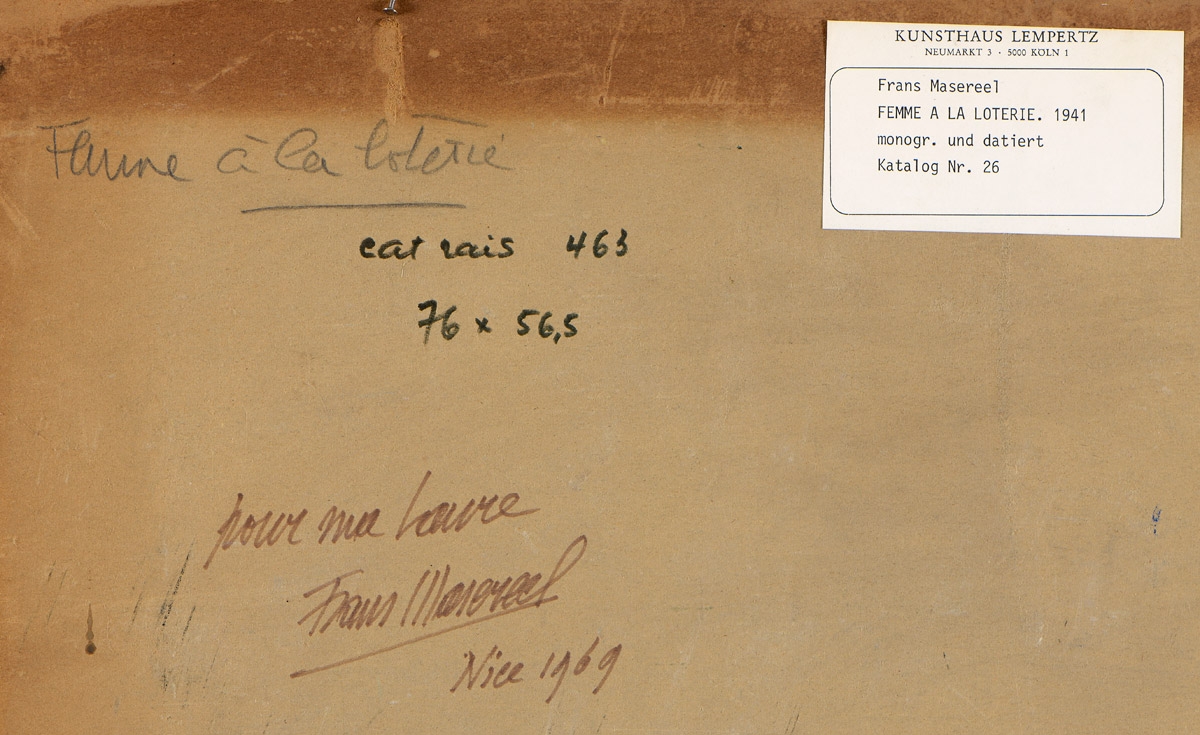 KUNSTHAUS LEMPERTZ
NEUMARKT 3 · 5000 KÖLN 1
Frans Masereel
FEMME A LA LOTERIE. 1941
monogr. und datiert
Katalog Nr. 26
Femme à la loterie
cat rais 463
76 x 56,5
pour ma Laure
Frans Masereel
Nice 1969